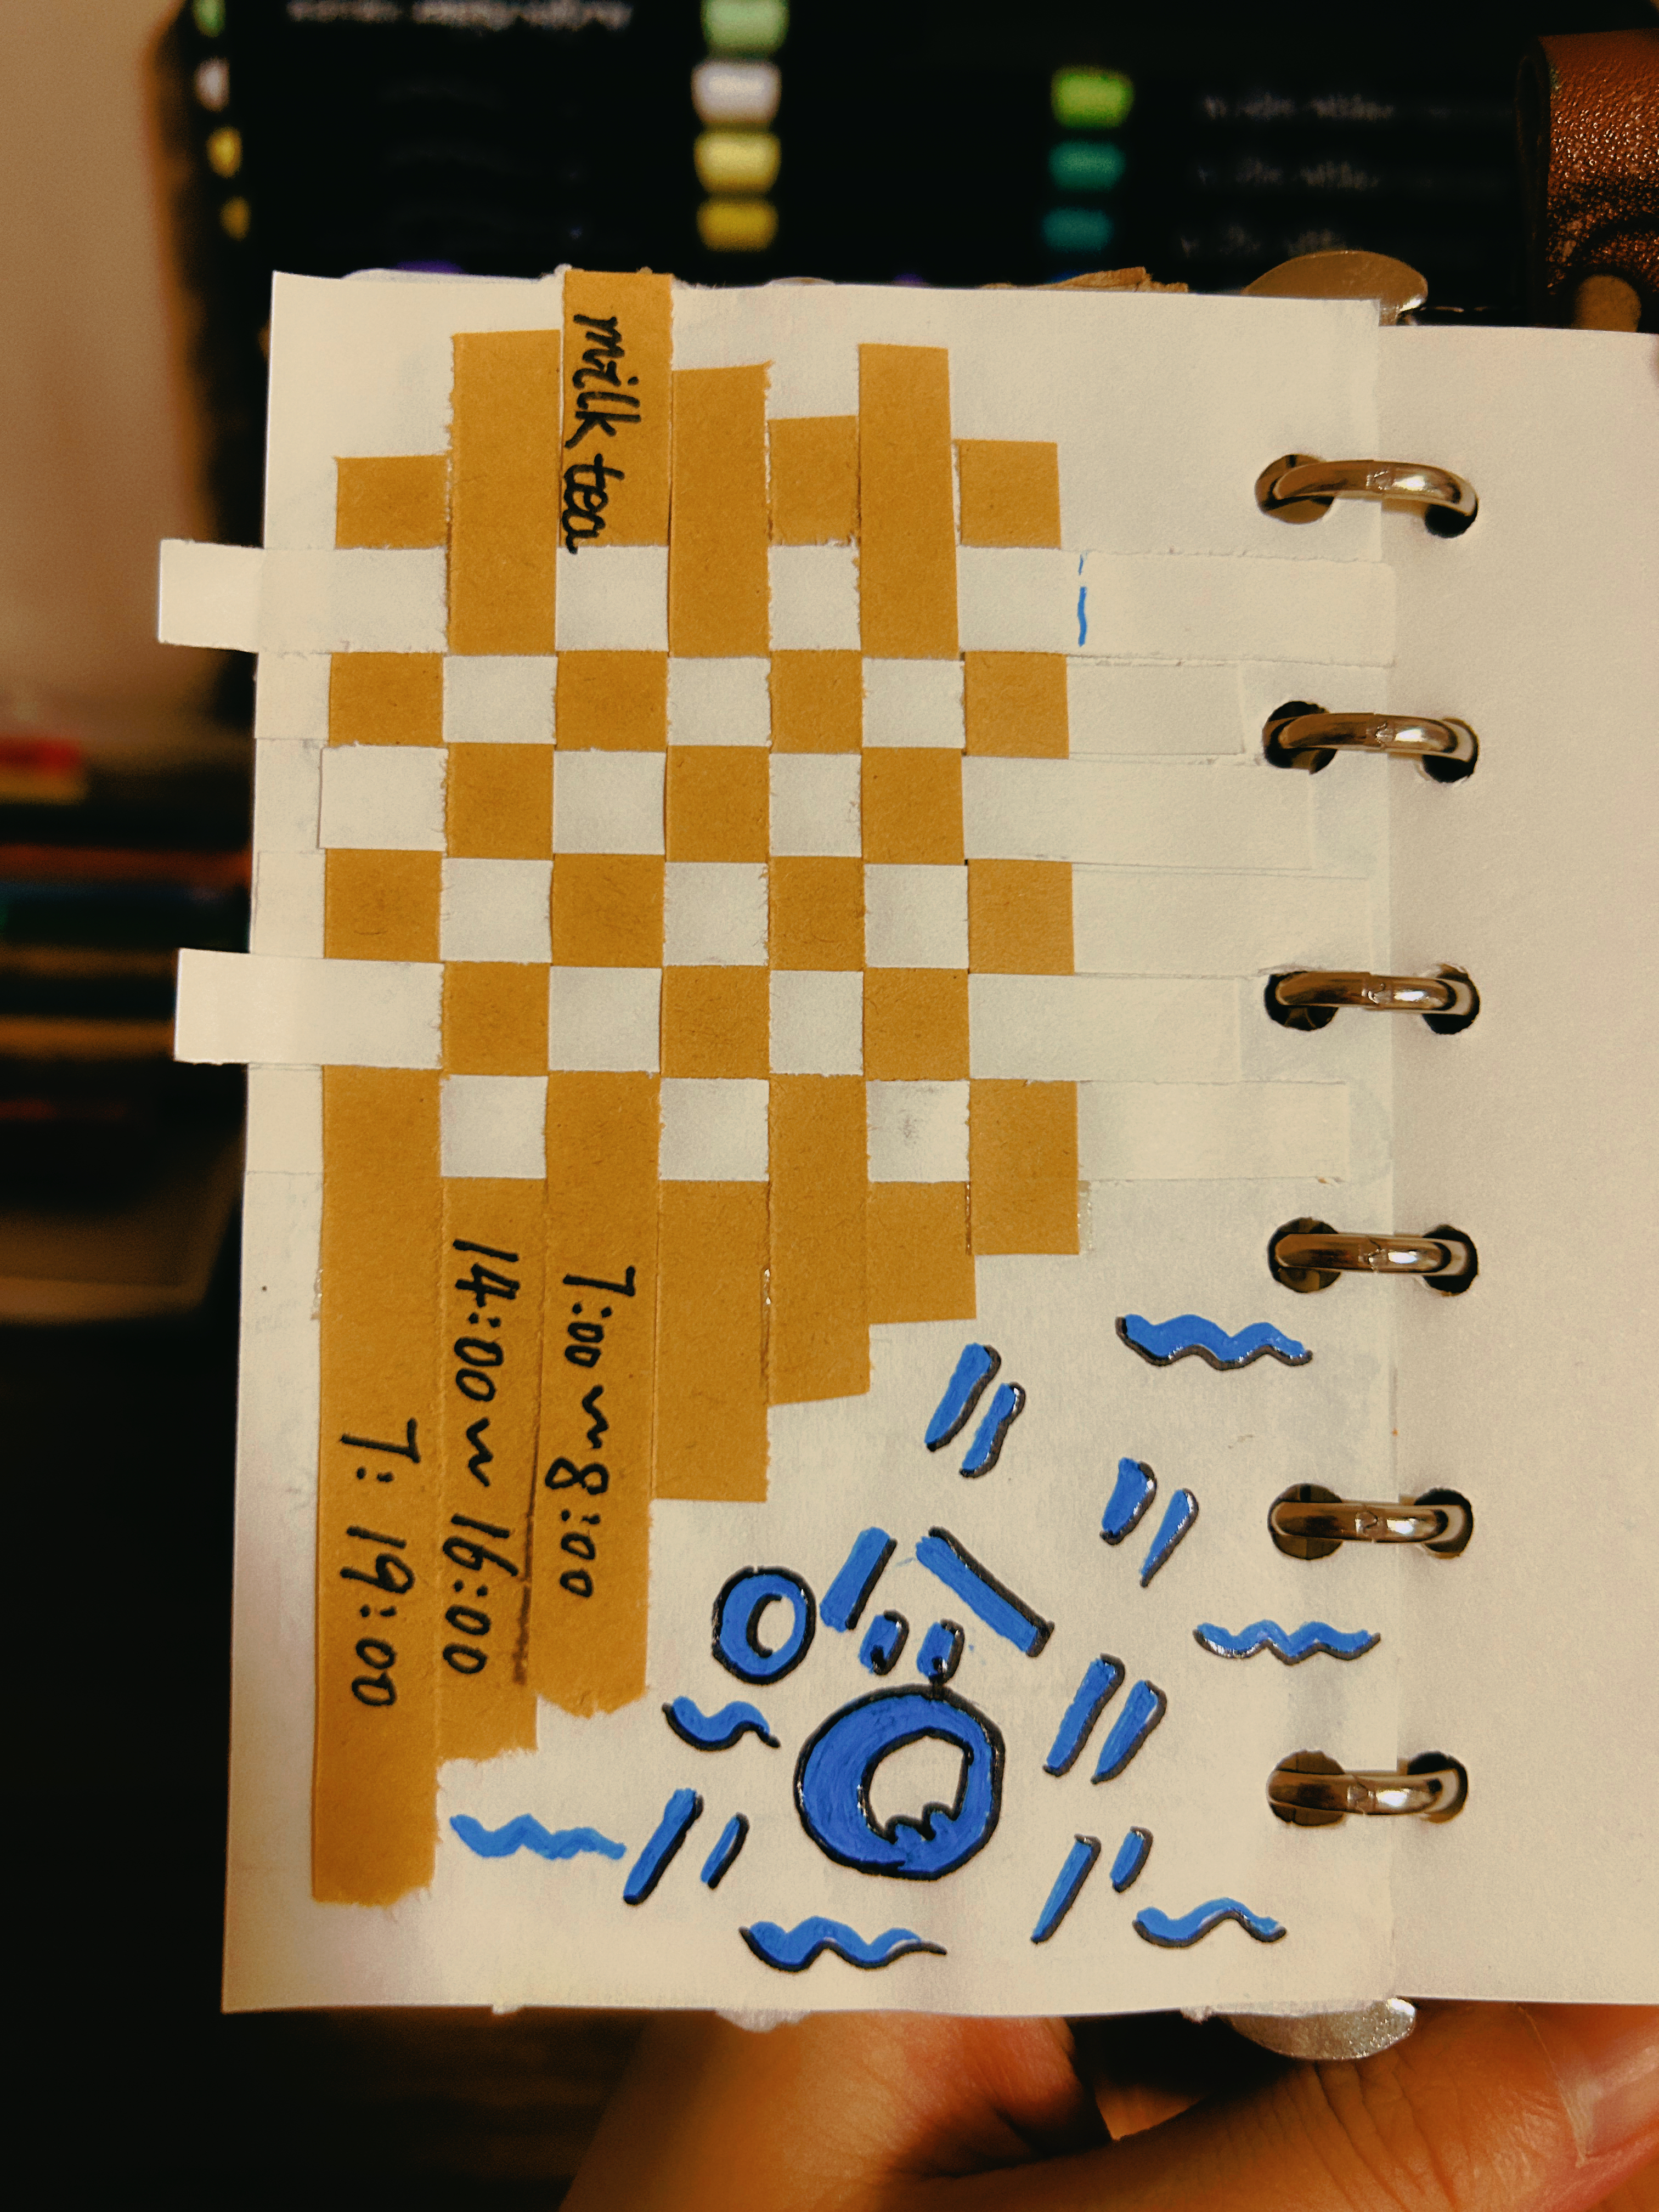 milk tea
7:00 ~ 8:00
14:00 ~ 16:00
T: 19:00